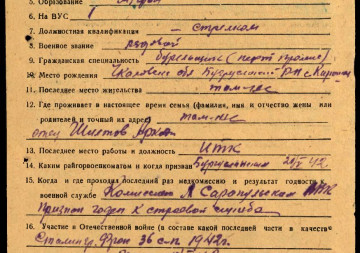 5. Образование
6. На ВУС 1
7. Должностная квалификация — стрелком
8. Военное звание рядовой
9. Гражданская специальность бурильщик (нефт. промыс.)
10. Место рождения обл. Бугурусланский р-н с.
11. Последнее место жительства там-же
12. Где проживает в настоящее время семья (фамилия, имя и отчество жены или
родителей и точный их адрес) там-же
отец Шиятов
13. Последнее место работы и должность ИТК
14. Каким райгорвоенкоматом и когда призван Бугурусланским 42г.
15. Когда и где проходил последний раз медкомиссию и результат годности к
военной службе Комиссией Сарапульским
Признан годен к строевой службе
16. Участие в Отечественной войне (в составе какой последней части в качестве
Сталингр. Фрон 36 с.п. 1942г.